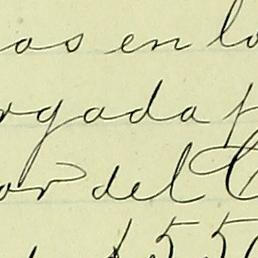 as en lo
rgada p
or del C
$550